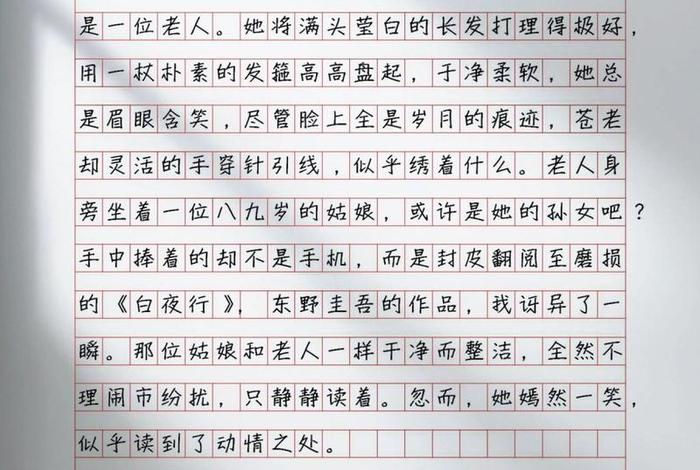 是一位老人。她将满头莹白的长发打理得极好，
用一杖朴素的发箍高高盘起，于净柔软，她总
是眉眼含笑，尽管脸上全是岁月的痕迹，苍老
却灵活的手穿针引线，似乎绣着什么。老人身
旁坐着一位八九岁的姑娘，或许是她的孙女吧？
手中捧着的却不是手机，而是封皮翻阅至磨损
的《白夜行》，东野圭吾的作品，我讶异了一
瞬。那位姑娘和老人一样干净而整洁，全然不
理闹市纷扰，只静静读着。忽而，她嫣然一笑，
似乎读到了动情之处。